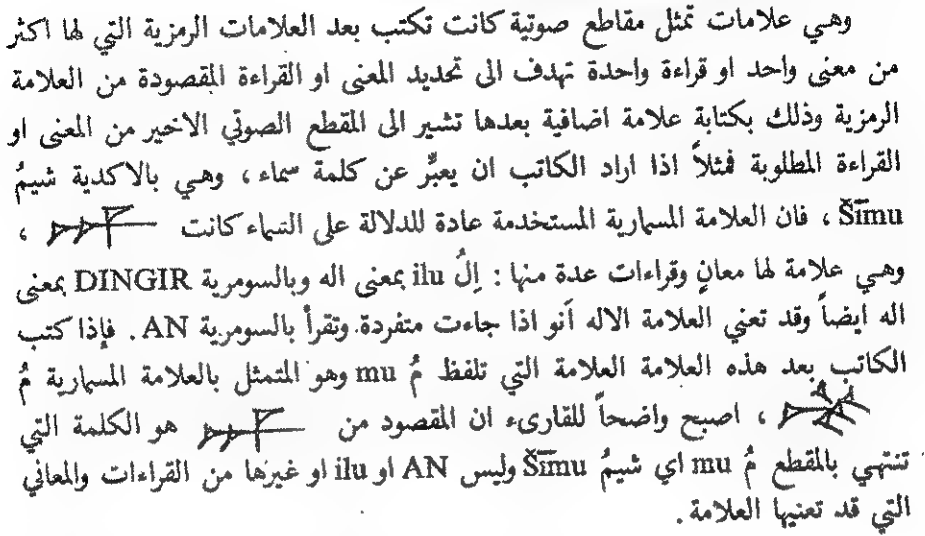 وهي علامات تمثل مقاطع صوتية كانت تكتب بعد العلامات الرمزية التي لها اكثر
من معنى واحد او قراءة واحدة تهدف الى تحديد المعنى او القراءة المقصودة من العلامة
الرمزية وذلك بكتابة علامة اضافية بعدها تشير الى المقطع الصوتي الاخير من المعنى او
القراءة المطلوبة فمثلاً اذا اراد الكاتب ان يعبّر عن كلمة سماء ، وهي بالاكدية شيمُ
Šīmu ، فان العلامة المسمارية المستخدمة عادة للدلالة على السماء كانت 𒀭 ،
وهي علامة لها معانٍ وقراءات عدة منها : اِلُ ilu بمعنى اله وبالسومرية DINGIR بمعنى
اله ايضاً وقد تعني العلامة الاله اَنو اذا جاءت متفردة وتقرأ بالسومرية AN . فإذا كتب
الكاتب بعد هذه العلامة العلامة التي تلفظ مُ mu وهو المتمثل بالعلامة المسمارية مُ
، اصبح واضحاً للقارىء ان المقصود من 𒀭 هو الكلمة التي
تنتهي بالمقطع مُ mu اي شيمُ Šīmu وليس AN او ilu او غيرها من القراءات والمعاني
التي قد تعنيها العلامة .